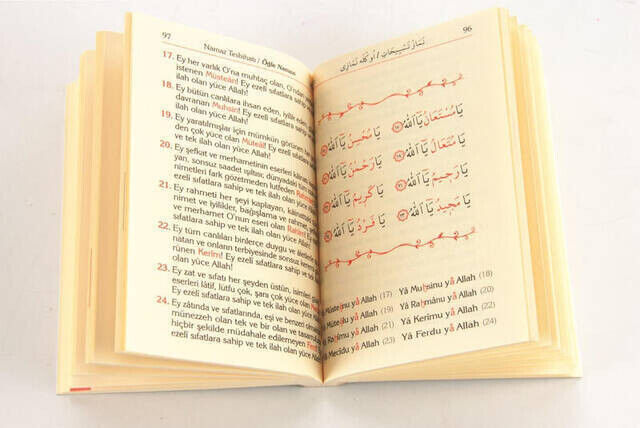 97
Namaz Tesbihatı / Öğle Namazı
17. Ey her varlık O'na muhtaç olan, O'ndan
istenen Müsteân! Ey ezelî sıfatlara sahip
ilah olan yüce Allah!
18. Ey bütün canlılara ihsan eden, iyilik eden,
davranan Muhsin! Ey ezelî sıfatlara sahip
ve tek ilah olan yüce Allah!
19. Ey yaratılmışlar için mümkün görünen her
den çok yüce olan Müteâl! Ey ezelî sıfatlara
ve tek ilah olan yüce Allah!
20. Ey şefkat ve merhametinin eserleri kâinatı
yan, sonsuz saadet ışıtısı; dünyadaki tüm
nimetleri fark gözetmeden lütfeden
ezelî sıfatlara sahip ve tek ilah olan yüce
21. Ey rahmeti her şeyi kaplayan, kâinattaki
nimet ve iyilikler, bağışlama ve rahmet,
ve merhamet O'nun eseri olan
sıfatlara sahip ve tek ilah olan yüce Allah!
22. Ey tüm canlıları binlerce duygu ve âletlerle
natan ve onların terbiyesinde sonsuz
rünen Kerîm! Ey ezelî sıfatlara sahip
olan yüce Allah!
23. Ey zat ve sıfatı her şeyden üstün, isimleri
eserleri lâtif, lütfu çok, şanı çok yüce
Ey ezelî sıfatlara sahip ve tek ilah olan
24. Ey zâtında ve sıfatlarında, eşi ve benzeri
münezzeh olan tek ve bir olan ve tasarrufuna
hiçbir şekilde müdahale edilemeyen
ezelî sıfatlara sahip ve tek ilah olan yüce
96
نَمَازْ تَسْبِيحَاتِى / أُوكْلَه نَمَازِى
يَا مُسْتَعَانُ يَا اَللّٰهُ ﴿١٧﴾ يَا مُحْسِنُ يَا اَللّٰهُ ﴿١٨﴾
يَا مُتَعَالُ يَا اَللّٰهُ ﴿١٩﴾ يَا رَحْمٰنُ يَا اَللّٰهُ ﴿٢٠﴾
يَا رَحِيمُ يَا اَللّٰهُ ﴿٢١﴾ يَا كَرِيمُ يَا اَللّٰهُ ﴿٢٢﴾
يَا مَجِيدُ يَا اَللّٰهُ ﴿٢٣﴾ يَا فَرْدُ يَا اَللّٰهُ ﴿٢٤﴾
Müsteânu yâ Allah (17) Yâ Muḥsinu yâ Allah (18)
Müteâlu yâ Allah (19) Yâ Raḥmânu yâ Allah (20)
Raḥîmu yâ Allah (21) Yâ Kerîmu yâ Allah (22)
Mecîdu yâ Allah (23) Yâ Ferdu yâ Allah (24)